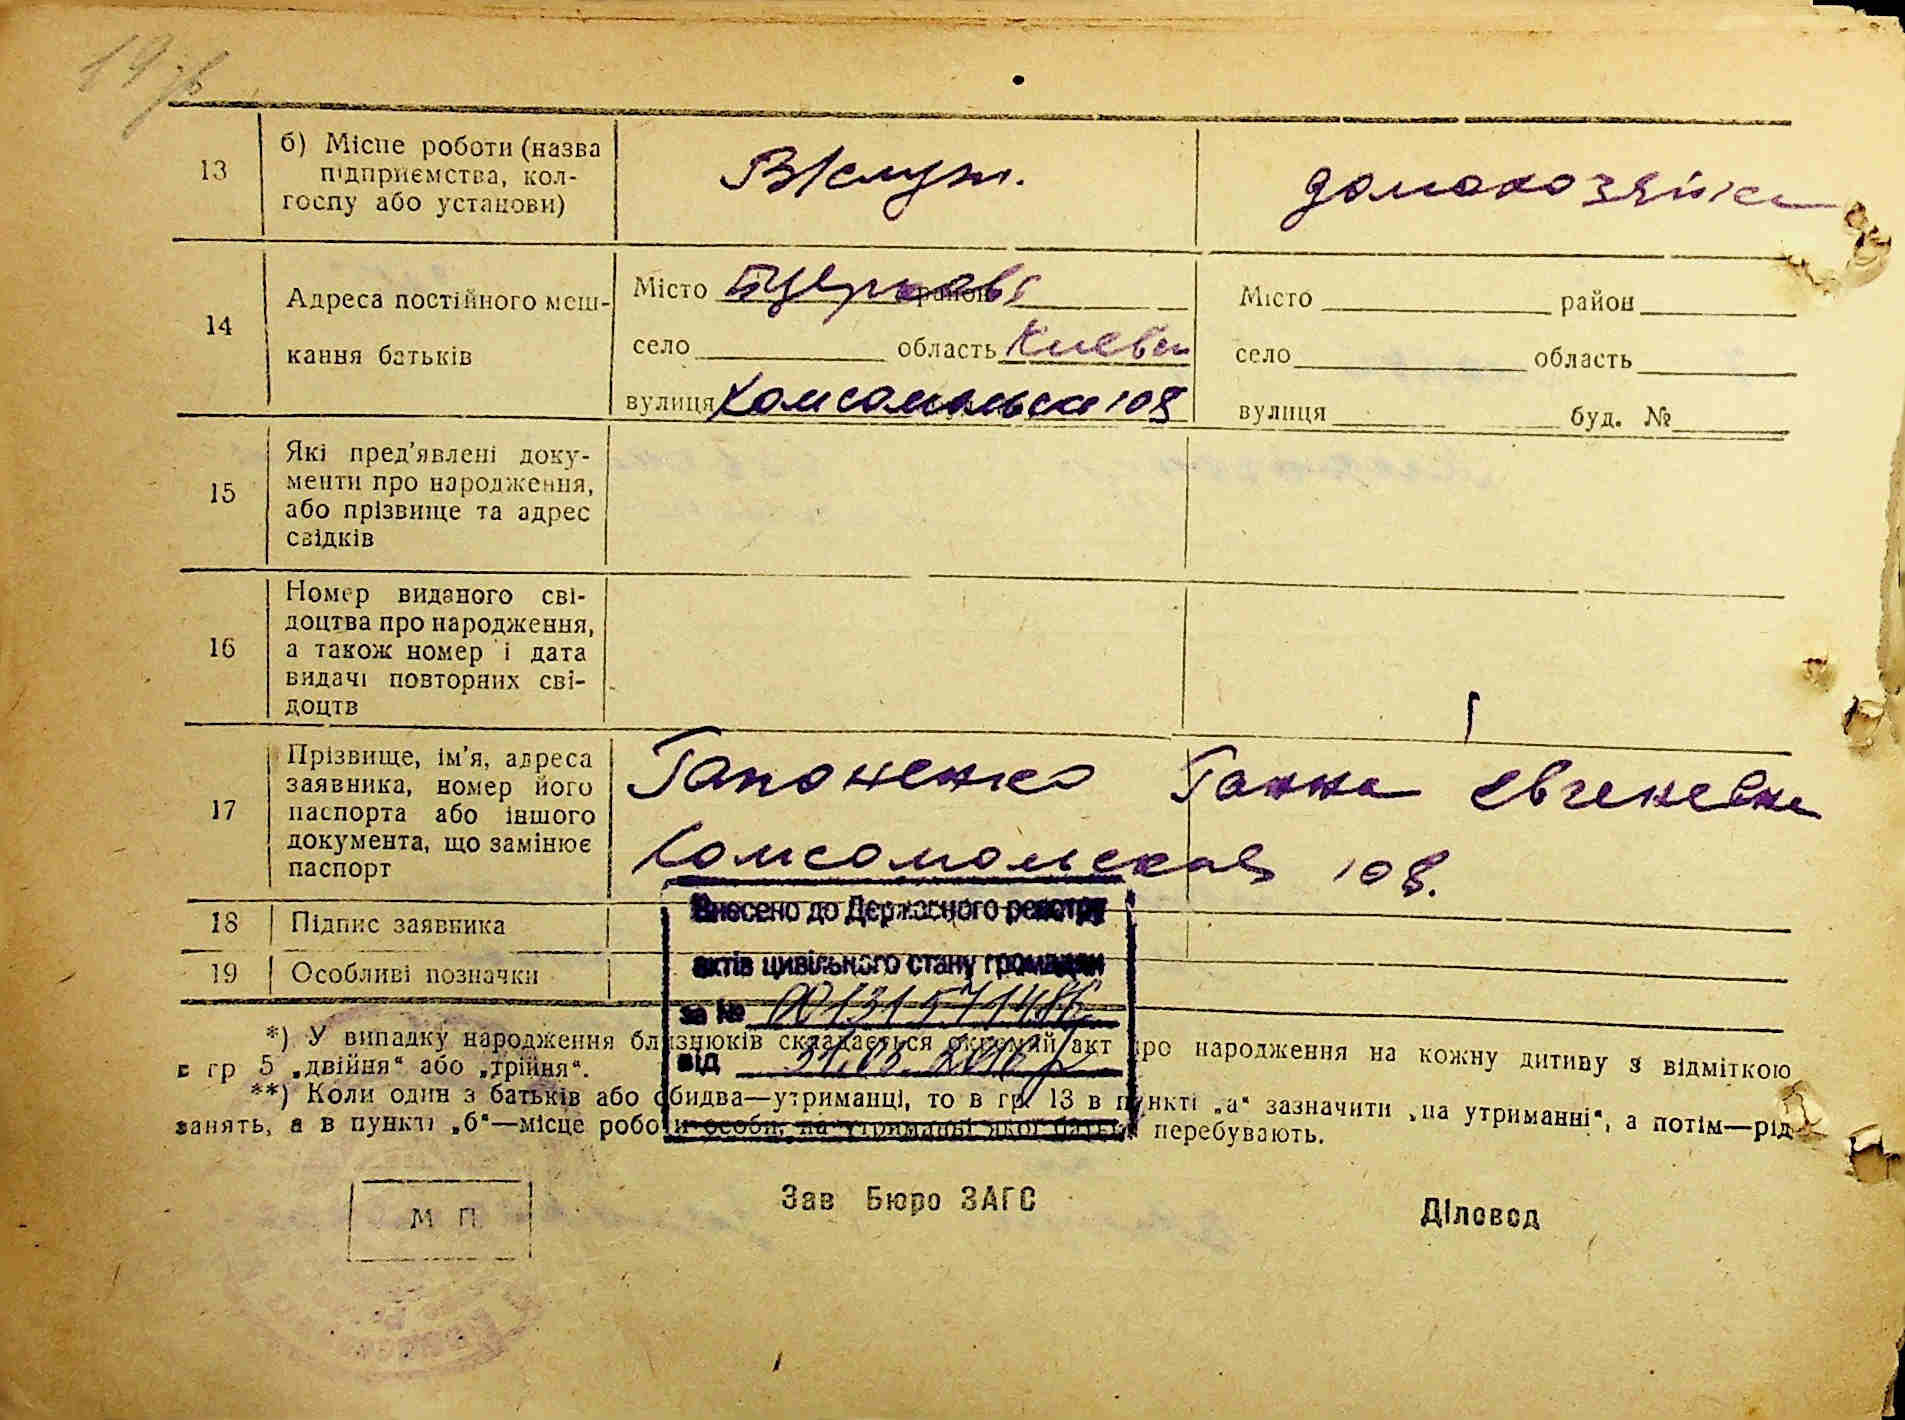 13
б) Місце роботи (назва
підприємства, кол-
госпу або установи)
В/служ.
домохозяйка
14
Адреса постійного меш-
кання батьків
Місто Б Церковь район
село область Киевск
вулиця Комсомольска 108
Місто район
село область
вулиця буд. №
15
Які пред’явлені доку-
менти про народження,
або прізвище та адрес
свідків
16
Номер виданого сві-
доцтва про народження,
а також номер і дата
видачі повторних сві-
доцтв
17
Прізвище, ім’я, адреса
заявника, номер його
паспорта або іншого
документа, що замінює
паспорт
Гапоненко Ганна Евгеневна
Комсомольская 108.
18 Підпис заявника
19 Особливі позначки
Внесено до Державного реєстру
актів цивільного стану громадян
за № 00131571486
від 31.03.2016
*) У випадку народження близнюків складається окремий акт про народження на кожну дитину з відміткою
в гр 5 „двійня“ або „трійня“.
**) Коли один з батьків або обидва—утриманці, то в гр. 13 в пункті „а“ зазначити „на утриманні“, а потім—рід
занять, а в пункті „б“—місце роботи особи, на утриманні якої батьки перебувають.
М П
Зав Бюро ЗАГС
Діловод